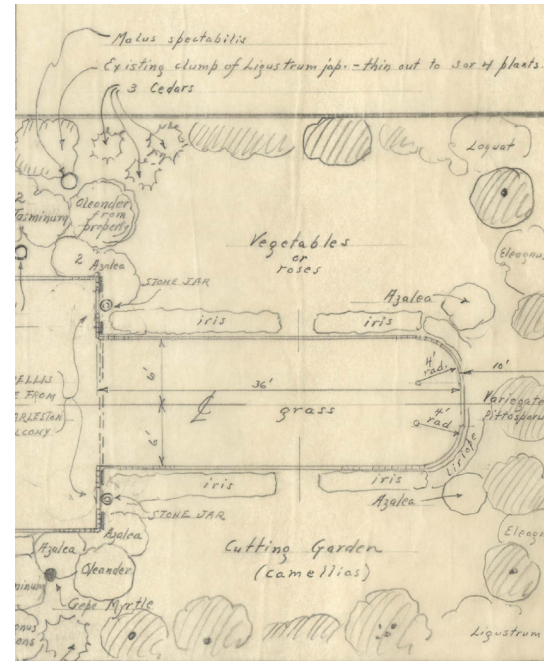 Malus spectabilis
Existing clump of Ligustrum jap. - thin out to 3 or 4 plants.
3 Cedars
Loquat
2
Jasminum
Oleander
from
property
Vegetables
or
roses
Eleagnus
2 Azalea
STONE JAR
Azalea
iris
iris
6'
4'
rad.
10'
36'
TRELLIS
FROM
CHARLESTON
BALCONY
℄
grass
Variegate
Pittosporu
6'
4'
rad
Liriope
iris
iris
Azalea
STONE JAR
Azalea
Azalea
Cutting Garden
(camellias)
Eleagn
Oleander
minum
Cepe Myrtle
Ligustrum